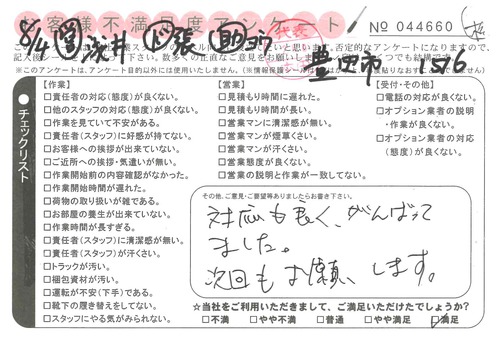 お客様不満足度アンケート！
No 044660
8/4
浅井
豊田市
1576
※このアンケートは、アンケート目的以外には使用いたしません。
チェックリスト
【作業】
□責任者の対応(態度)が良くない。
□他のスタッフの対応(態度)が良くない。
□作業を見ていて不安がある。
□責任者(スタッフ)に好感が持てない。
□お客様への挨拶が出来ていない。
□ご近所への挨拶・気遣いが無い。
□作業開始前の内容確認がなかった。
□作業開始時間が遅れた。
□荷物の取り扱いが雑である。
□お部屋の養生が出来ていない。
□作業時間が長すぎる。
□責任者(スタッフ)に清潔感が無い。
□責任者(スタッフ)が汗くさい。
□トラックが汚い。
□梱包資材が汚い。
□運転が不安(下手)である。
□靴下の履き替えをしてない。
□スタッフにやる気がみられない。
【営業】
□見積もり時間に遅れた。
□見積もり時間が長い。
□営業マンに清潔感が無い。
□営業マンが煙草くさい。
□営業マンが汗くさい。
□営業態度が良くない。
□営業の説明と作業が一致してない。
【受付・その他】
□電話の対応が良くない。
□オプション業者の説明
・作業が良くない。
□オプション業者の対応
(態度)が良くない。
その他、ご意見・ご要望等ありましたらお書き下さい。
対応も良く、がんばって
ました。
次回もお願いします。
☆当社をご利用いただきまして、ご満足いただけたでしょうか?
□不満 □やや不満 □普通 □やや満足 ☑満足